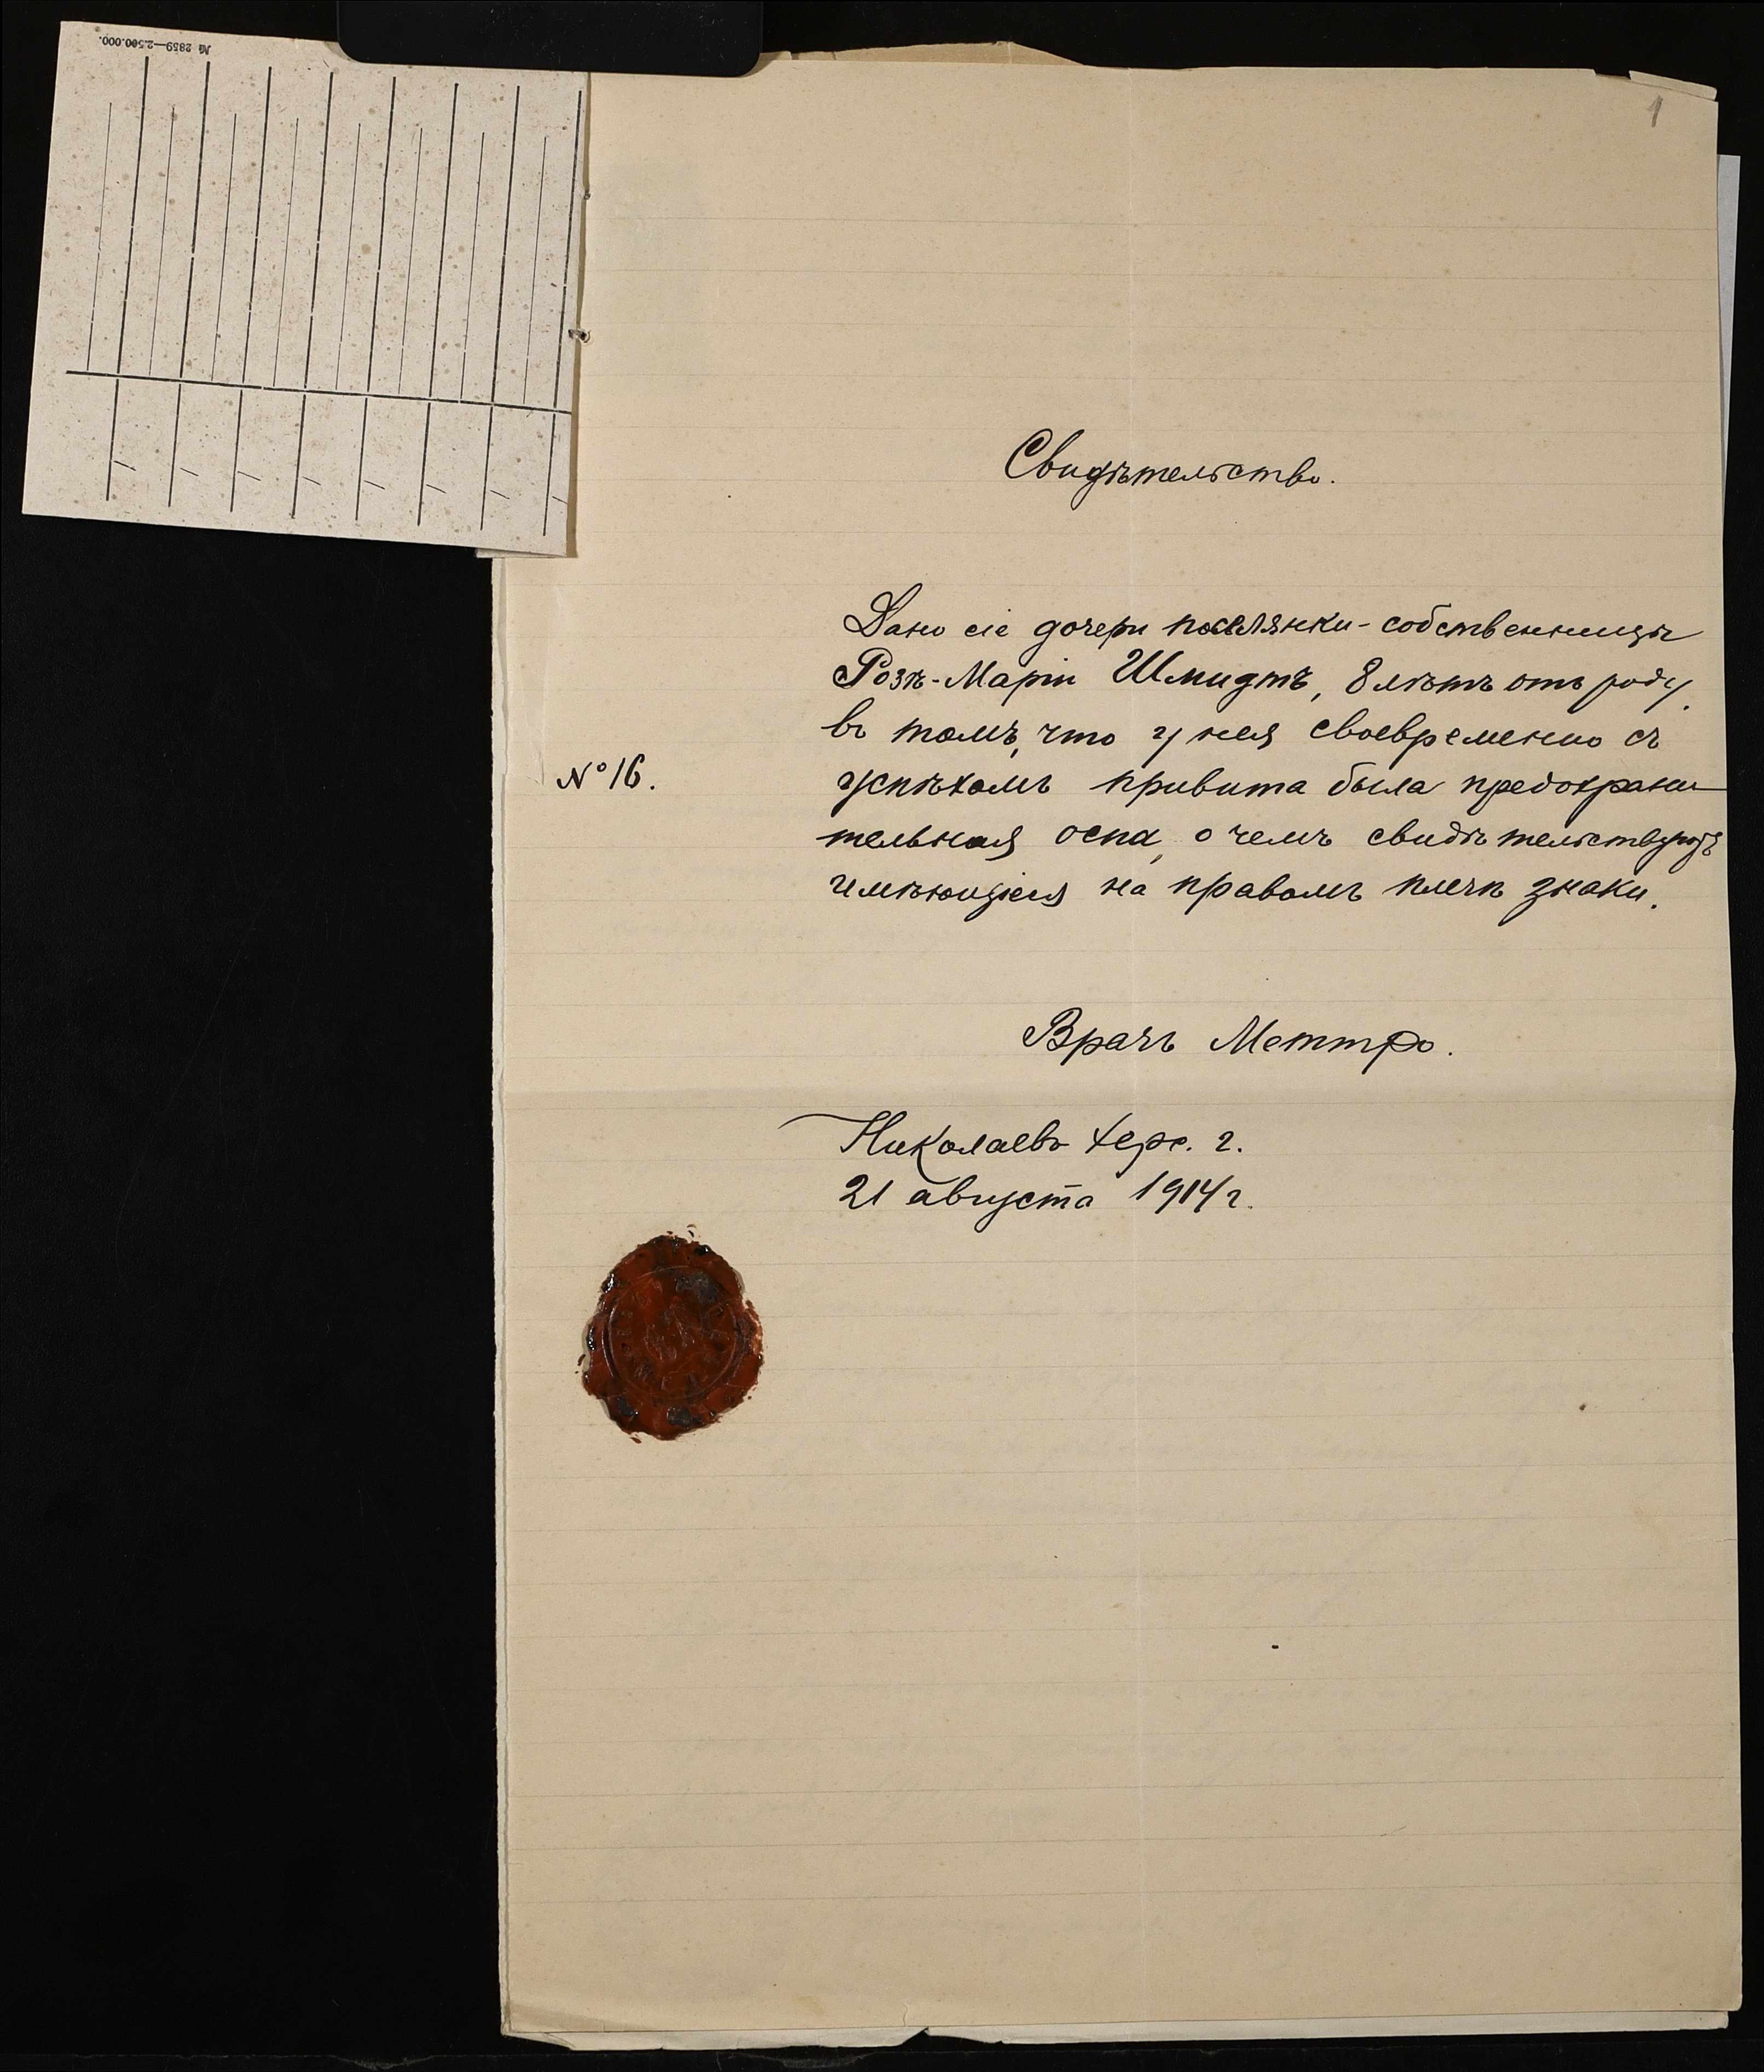 № 2859—2.500.000.
1
Свидѣтельство.
Дано сіе дочери поселянки-собственницы
Розѣ-Маріи Шмидтъ, 8 лѣтъ отъ роду,
въ томъ, что у нея своевременно съ
№ 16.
успѣхомъ привита была предохрани-
тельная оспа, о чемъ свидѣтельствуютъ
имѣющіеся на правомъ плечѣ знаки.
Врачъ Меттро.
Николаевъ Херс. г.
21 августа 1914 г.